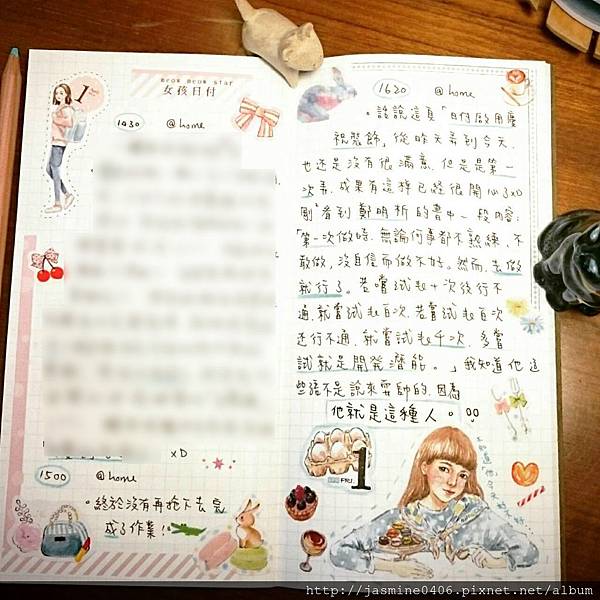 1
MEOW MEOW STAR
女孩日付
1430 @home
xD
1500 @home
終於沒有再拖下去完
成了作業!!
1620 @home
該說這頁「日付啟用慶
祝裝飾」從昨天弄到今天,
也還是沒有很滿意,但是是第一
次弄,成果有這樣已經很開心了xD
剛看到鄭明析的書中一段內容:
「第一次做時,無論何事都不熟練、不
敢做,沒自信而做不好。然而,去做
就行了。若嘗試走十次後行不
通,就嘗試走百次,若嘗試走百次
還行不通,就嘗試走千次,多嘗
試就是開發潛能。」我知道他這
些話不是說來耍帥的,因為
他就是這種人。
FRI.
1
http://jasmine0406.pixnet.net/album